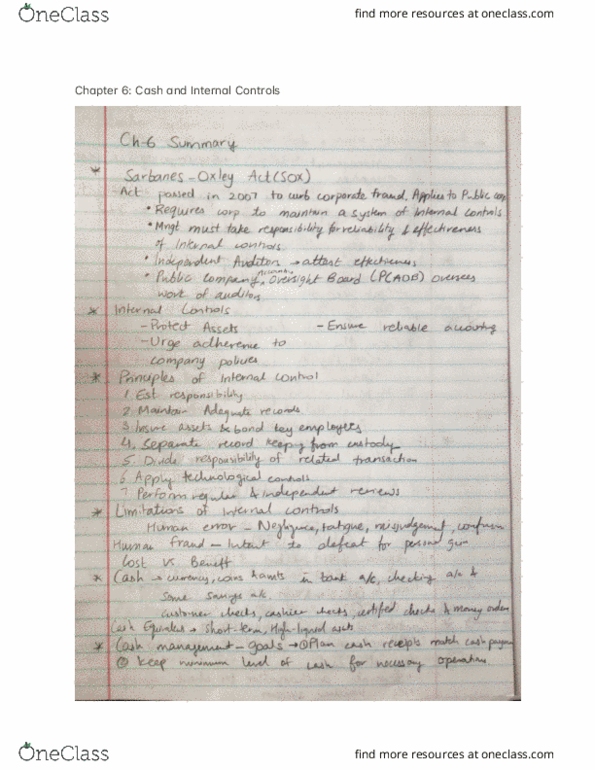 OneClass
find more resources at oneclass.com
Chapter 6: Cash and Internal Controls
Ch-6 Summary
* Sarbanes-Oxley Act (SOX)
- Act passed in 2007 to curb corporate fraud, Applies to Public corp
• Requires corp to maintain a system of internal controls
• Mngt must take responsibility for reliability & effectiveness
of Internal controls
• Independent Auditors → attest effectiveness
• Public company, Accounting Oversight Board (PCAOB) oversees
work of auditors
* Internal Controls
- Protect Assets - Ensure reliable accounting
- Urge adherence to
company policies
* Principles of Internal control
1. Est responsibility
2. Maintain Adequate records
3. Insure assets & bond key employees
4. Separate record keeping from custody
5. Divide responsibility of related transaction
6. Apply technological controls
7. Perform regular & independent reviews
* Limitations of Internal controls
Human error - Negligence, fatigue, misjudgement, confusion
Human fraud - Intent to defeat for personal gain
Cost vs. Benefit
* Cash → currency, coins & amts in bank a/c, checking a/c &
some savings a/c.
customer checks, cashier checks, certified checks & money orders
Cash Equivalents → short-term, High-liquid assets
* Cash management - goals → ① Plan cash receipts match cash payment
② keep minimum level of cash for necessary operation
OneClass
find more resources at oneclass.com